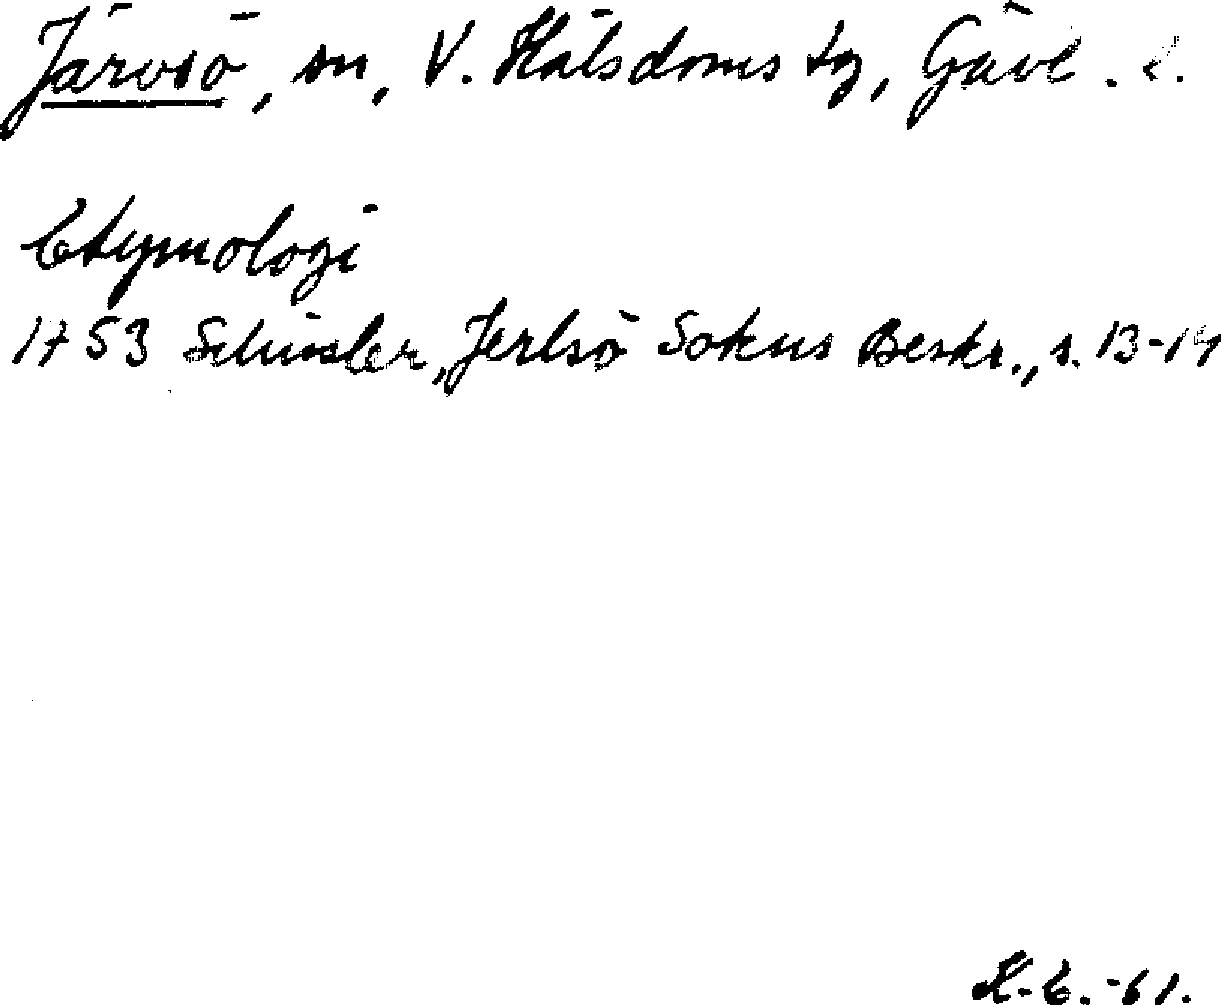 Järvsö, sn, V. Hälsdoms tg, Gävl. l.
Etymologi
1753 Schissler, „Jerlsö Sokns Beskr.„, s. 13-14
K.E. -61.